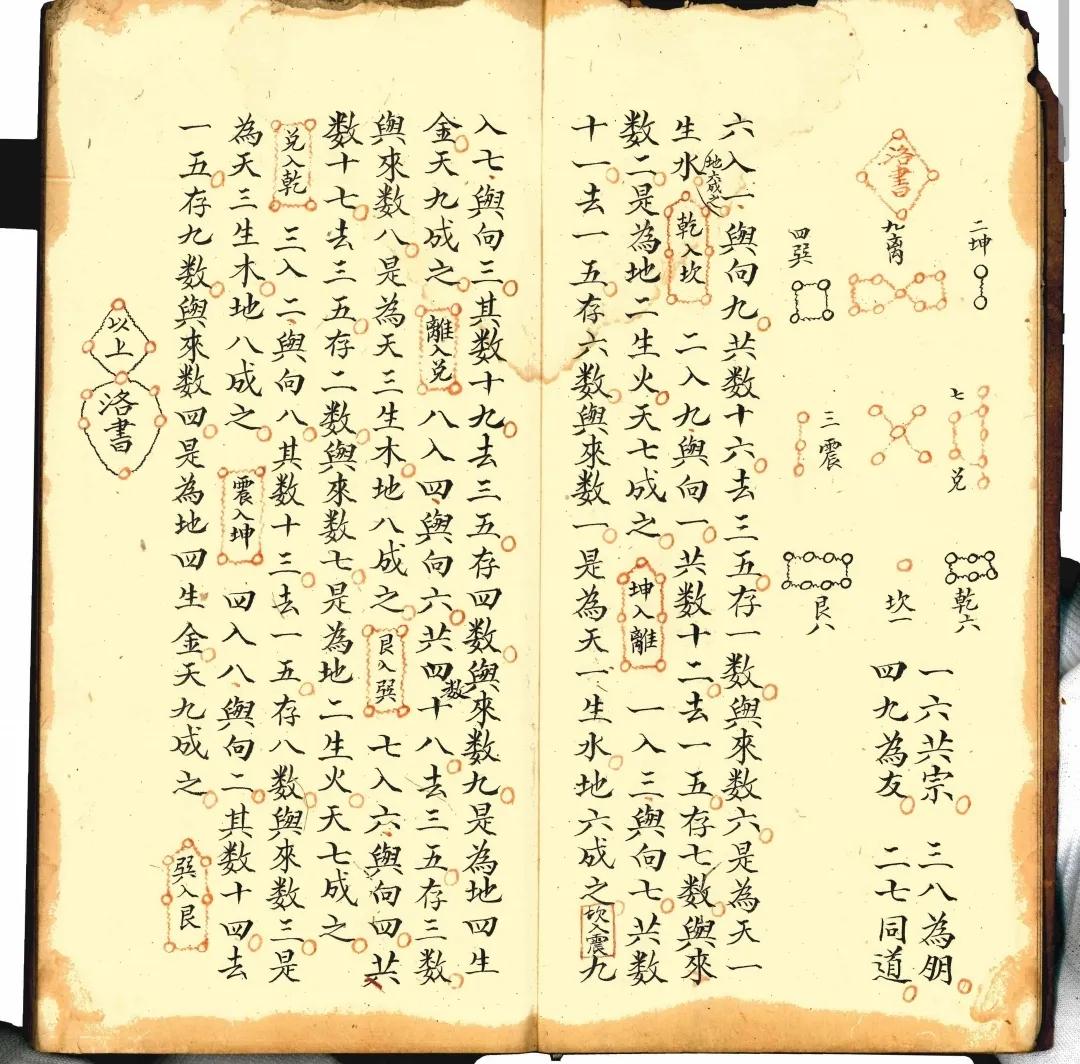 洛書
二坤
九离
四巽
七兑
三震
乾六
坎一
艮八
一六共宗 三八為朋
四九為友 二七同道
六入一與向九共数十六去三五存一数與來数六是為天一
生水地六成之 乾入坎 二入九與向一共数十二去一五存七数與來
数二是為地二生火天七成之 坤入離 一入三與向七共数
十一去一五存六数與來数一是為天一生水地六成之 坎入震 九
入七與向三其数十九去三五存四数與來数九是為地四生
金天九成之 離入兑 八入四與向六共四数十八去三五存三数
與來数八是為天三生木地八成之 艮入巽 七入六與向四共
数十七去三五存二数與來数七是為地二生火天七成之
兑入乾 三入二與向八其数十三去一五存八数與來数三是
為天三生木地八成之 震入坤 四入八與向二其数十四去
一五存九数與來数四是為地四生金天九成之 巽入艮
以上
洛書